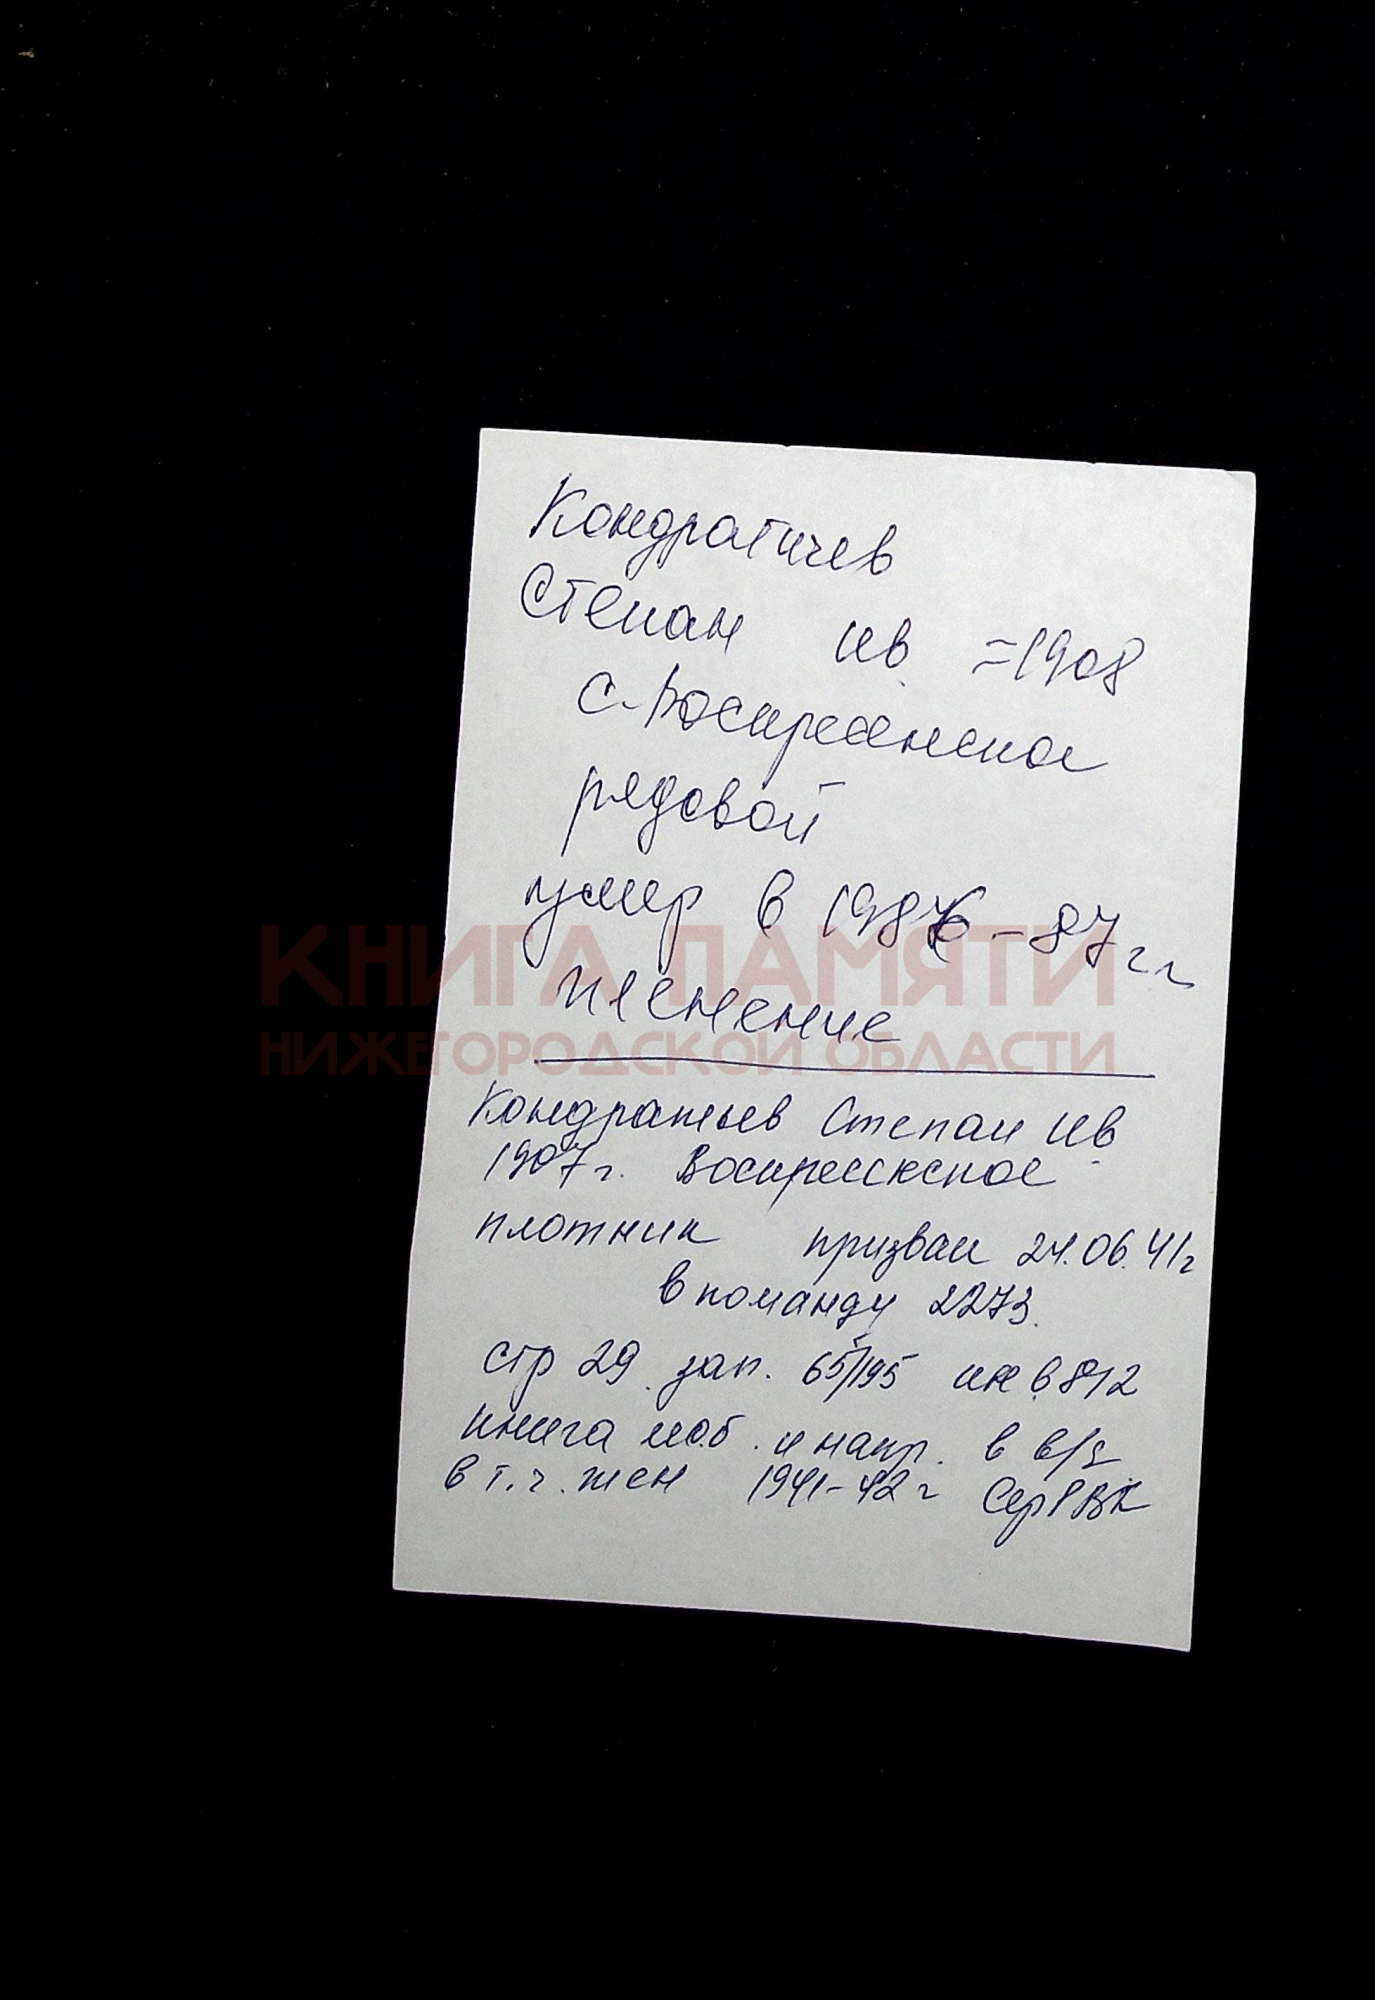 Кондратичев
Степан Ив. =1908
С-Воскресенское
рядовой
умер в 1986-87гг
КНИГА ПАМЯТИ
НИЖЕГОРОДСКОЙ ОБЛАСТИ
Кондратьев Степан Ив.
1907г. Воскресенское
плотник призван 24.06.41г
в команду 2273.
стр 29. зап. 65/195 инв 812
книга моб. и напр. в в/ч
в т.ч. жен 1941-42г СерРВК